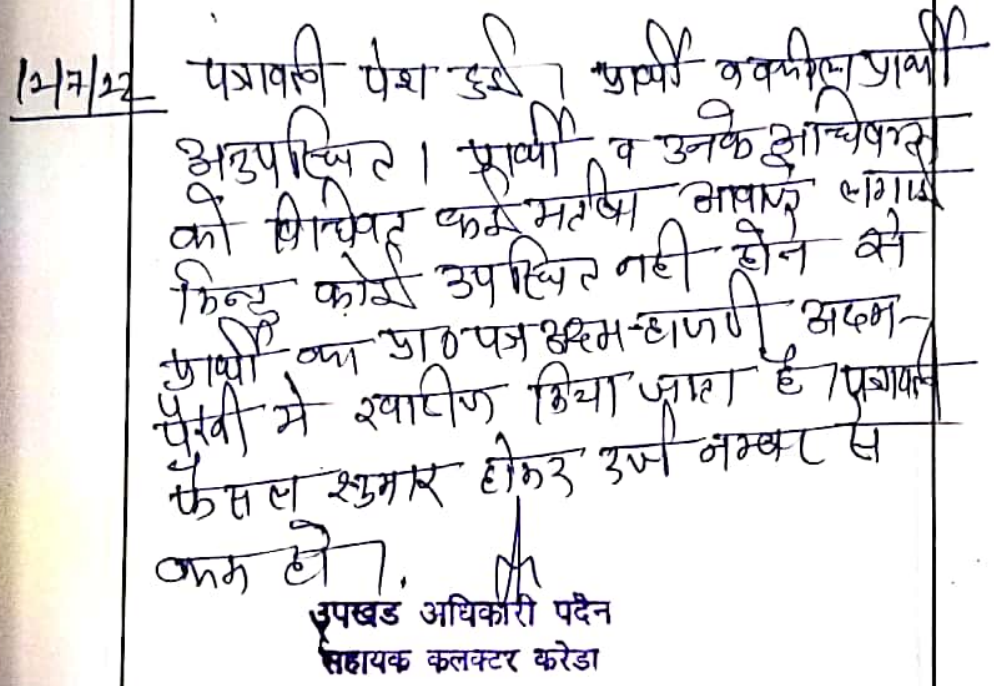 12/7/22 पत्रावली पेश हुई। प्रार्थी व वकील प्रार्थी
अनुपस्थित। प्रार्थी व उनके अधिवक्ता
को विधिवत कई मर्तबा आवाज लगाई
किन्तु कोई उपस्थित नही होने से
प्रार्थी का प्रा० पत्र अदम-हाजरी अदम-
पैरवी मे खारीज किया जाता है। पत्रावली
फैसल शुमार होकर दर्ज नम्बर से
कम हो।
उपखड अधिकारी पदैन
सहायक कलक्टर करेडा